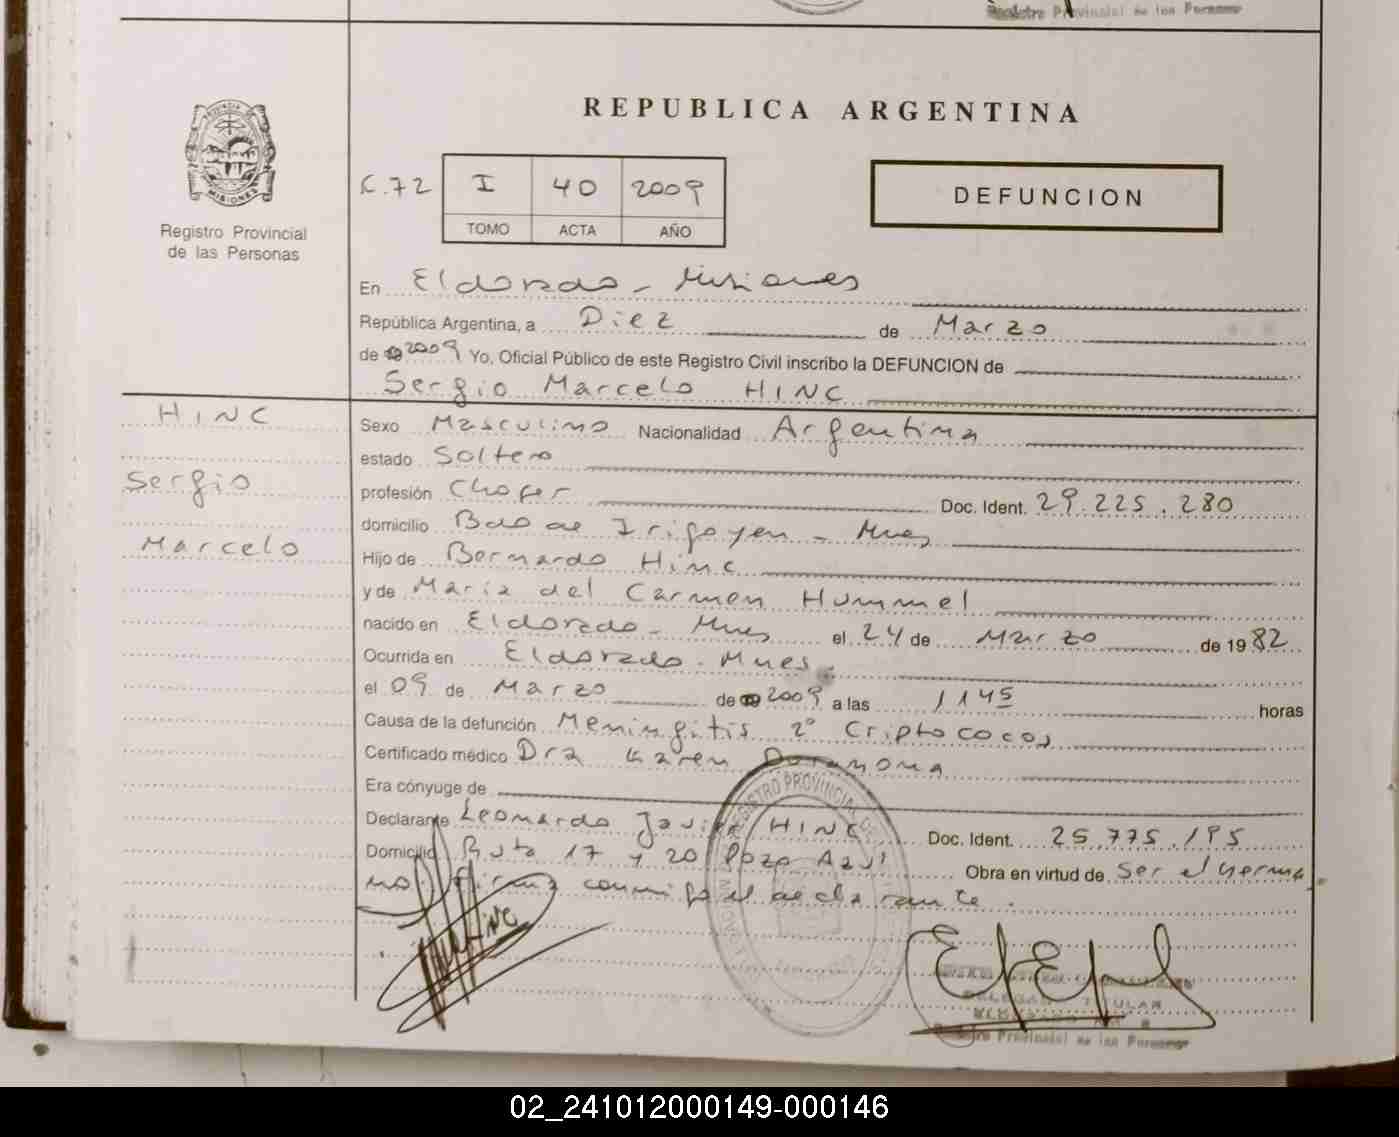 Registro Provincial de las Personas
REPUBLICA ARGENTINA
PROVINCIA DE
MISIONES
Registro Provincial
de las Personas
C.72 I 40 2009
TOMO ACTA AÑO
DEFUNCION
En Eldorado - Misiones
República Argentina, a Diez de Marzo
de 2009 Yo, Oficial Público de este Registro Civil inscribo la DEFUNCION de
Sergio Marcelo HINC
HINC
Sergio
Marcelo
Sexo Masculino Nacionalidad Argentina
estado Soltero
profesión Chofer Doc. Ident. 29.225.280
domicilio Bdo de Irigoyen - Mnes
Hijo de Bernardo Hinc
y de María del Carmen Hummel
nacido en Eldorado - Mnes el 24 de Marzo de 1982
Ocurrida en Eldorado - Mnes.
el 09 de Marzo de 2009 a las 1145 horas
Causa de la defunción Meningitis 2° Criptococos
Certificado médico Dra Karen
Era cónyuge de
Declarante Leonardo Javier HINC Doc. Ident. 25.775.195
Domicilio Ruta 17 y 20 Pozo Azul Obra en virtud de Ser el herma
no firma conmigo el declarante.
REGISTRO PROVINCIAL DE
TITULAR
Registro Provincial de las Personas
02_241012000149-000146